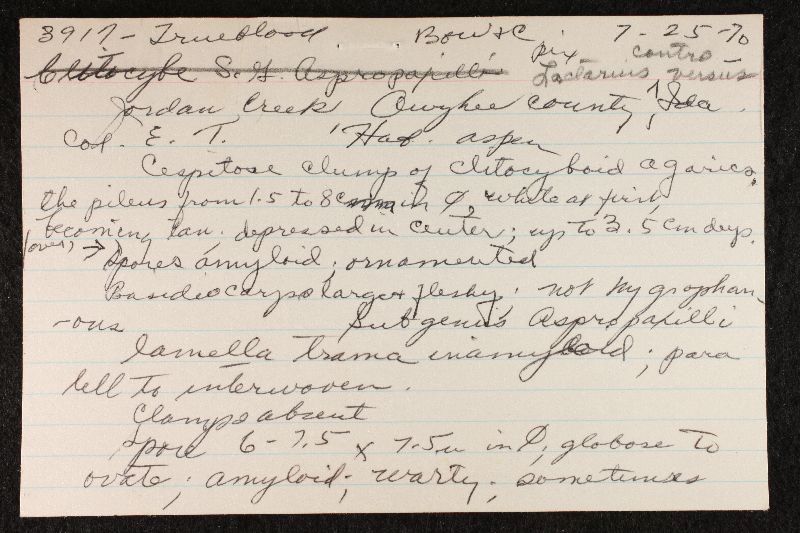 3917 - Trueblood Bow & C pix 7-25-70
contro
Clitocybe S. G. Aspropapilli Lactarius versus
Jordan Creek Owyhee county, Ida.
Col. E. T. Hab. aspen
Cespitose clumps of clitocyboid agarics.
the pileus from 1.5 to 8 cm in φ, white at first
becoming tan. depressed in center; up to 3.5 cm deep.
(over) → Spores amyloid; ornamented
Basidiocarps large & fleshy; not hygrophan-
-ous Subgenus Aspropapilli
lamella trama inamyloid; para
lell to interwoven.
Clamps absent
Spore 6-7.5 x 7.5u in φ, globose to
ovate; amyloid; warty; sometimes